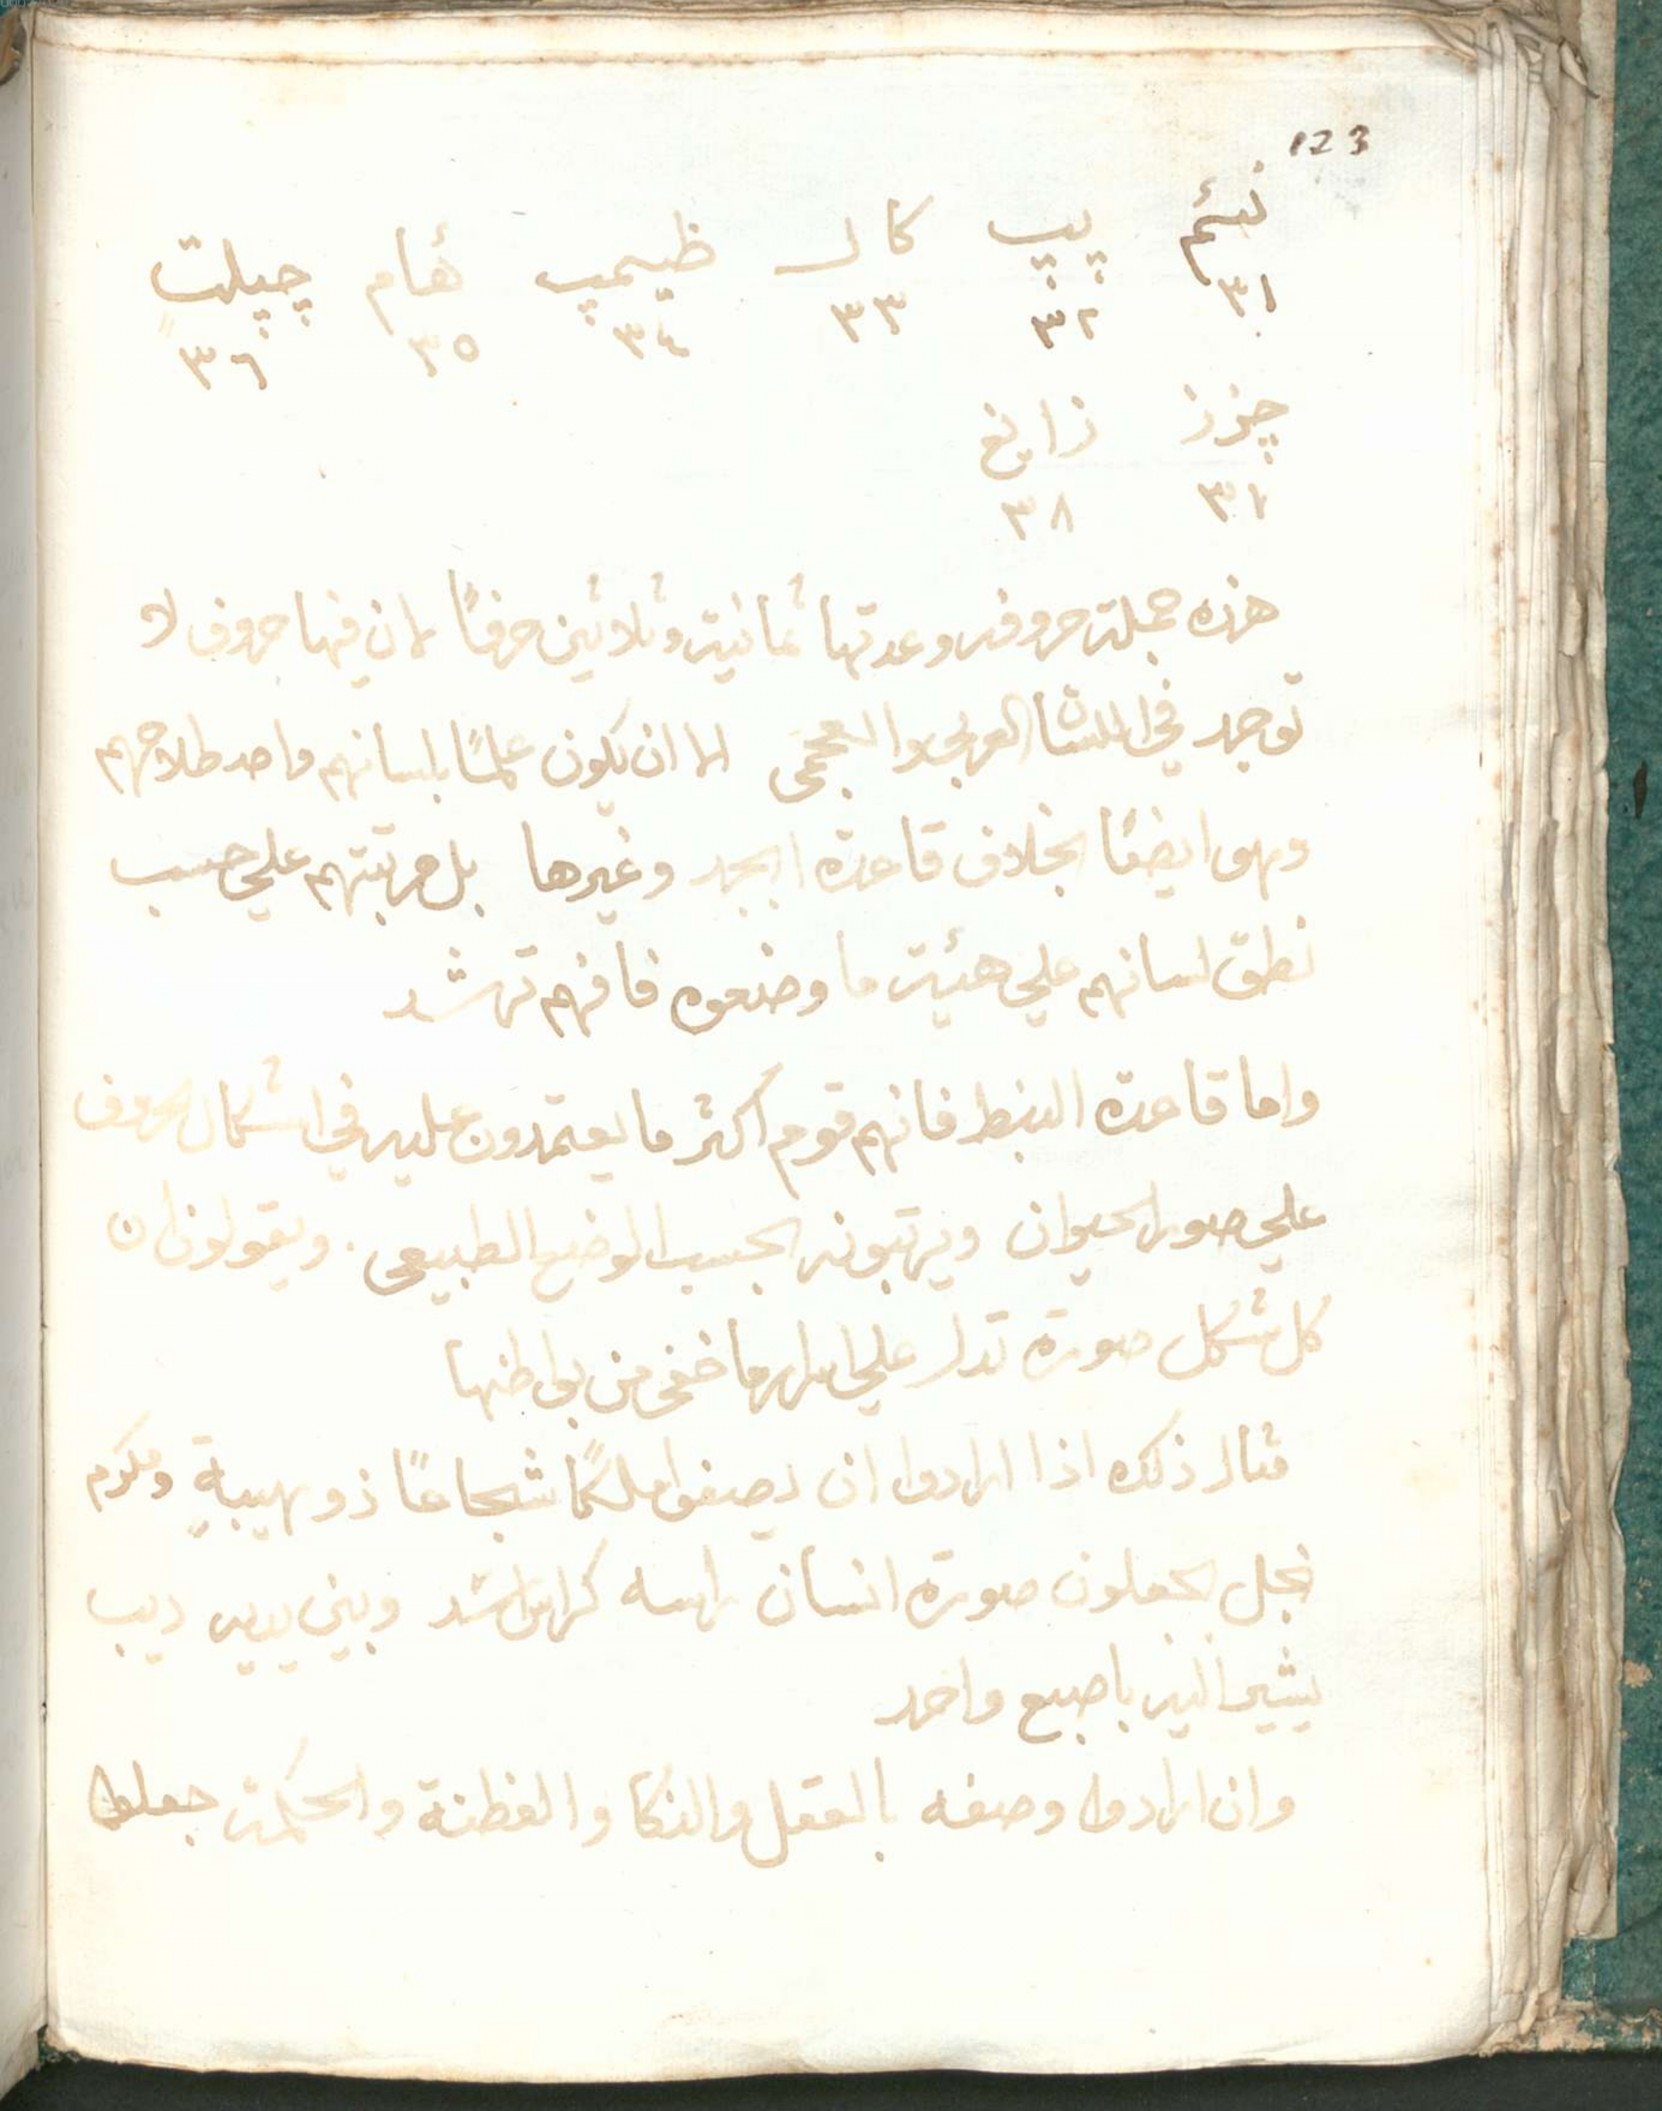 123
نسئم پيپ كال ظيمپ هٔام چپلت
٣١ ٣٢ ٣٣ ٣٤ ٣٥ ٣٦
چزز زايغ
٣٧ ٣٨
هذه جملة حروفه وعدتها ثمانية وثلاثين حرفاً لان فيها حروف لا
توجد في اللسان العربي والعجمى الا ان يكون علماً بلسانهم واصطلاحهم
وهو ايضاً بخلاف قاعدة ابجد وغيرها بل مرتبتهم علي حسب
نطق لسانهم علي هيئة ما وضعوه فافهم ترشد
واما قاعدة النبط فانهم قوم اكثر ما يعتمدون عليه في اشكال الحروف
علي صور الحيوان ويرتبونه بحسب الوضع الطبيعى . ويقولون ان
كل شكل صورة تدل علي اسرار ما خفى من بواطنها
مثال ذلك اذا ارادوا ان يصفوا ملكاً شجاعاً ذو هيبةٍ ومكرم
بخل يجعلون صورة انسان راسه كراس اسد وبين يديه ديب
يشير اليه باصبع واحد
وان ارادوا وصفه بالعقل والذكا والفطنة والحكمة جعلوا